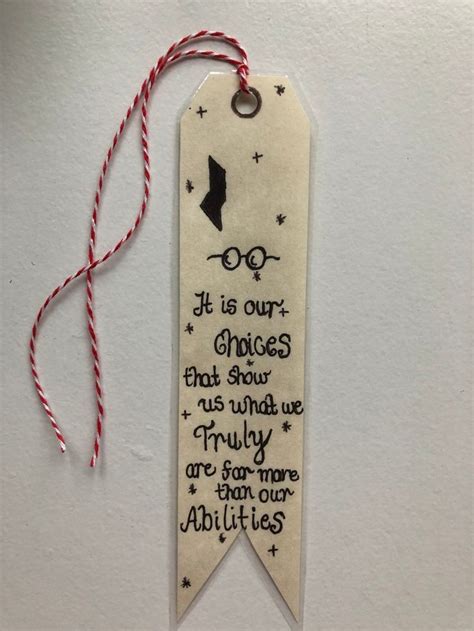 It is our
Choices
that show
us what we
Truly
are far more
than our
Abilities